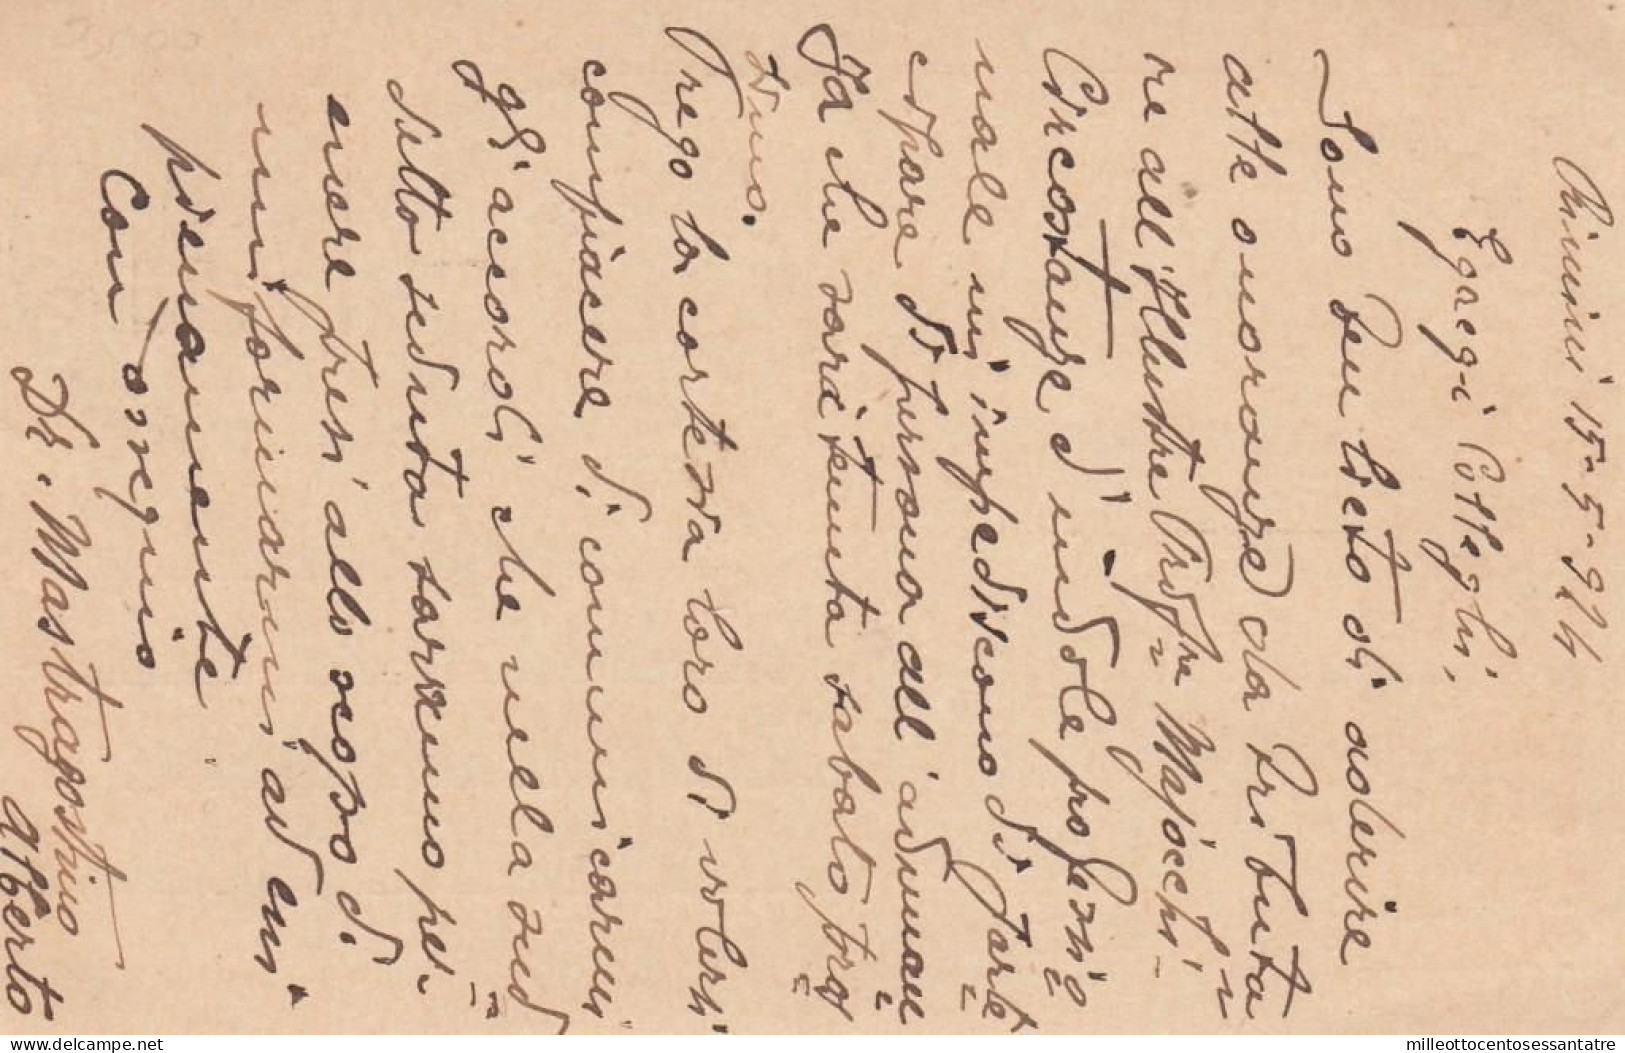 Rimini 15-5-924
Egregi Colleghi,
Sono ben lieto di aderire
alle onoranze da tributa
re all'Illustre Prof.re Majocchi -
Circostanze d'indole professio
nale mi impediscono di parte
cipare di persona all'adunan
za che sarà tenuta sabato pros
simo.
Prego la cortesia loro di volersi
compiacere di comunicarmi
gli accordi che nella sud
detta seduta saranno per
enire presi allo scopo di
uniformarmi ad essi
pienamente
Con ossequio
Dr. Mastragostino
Alberto
delcampe.net
milleottocentosessantatre